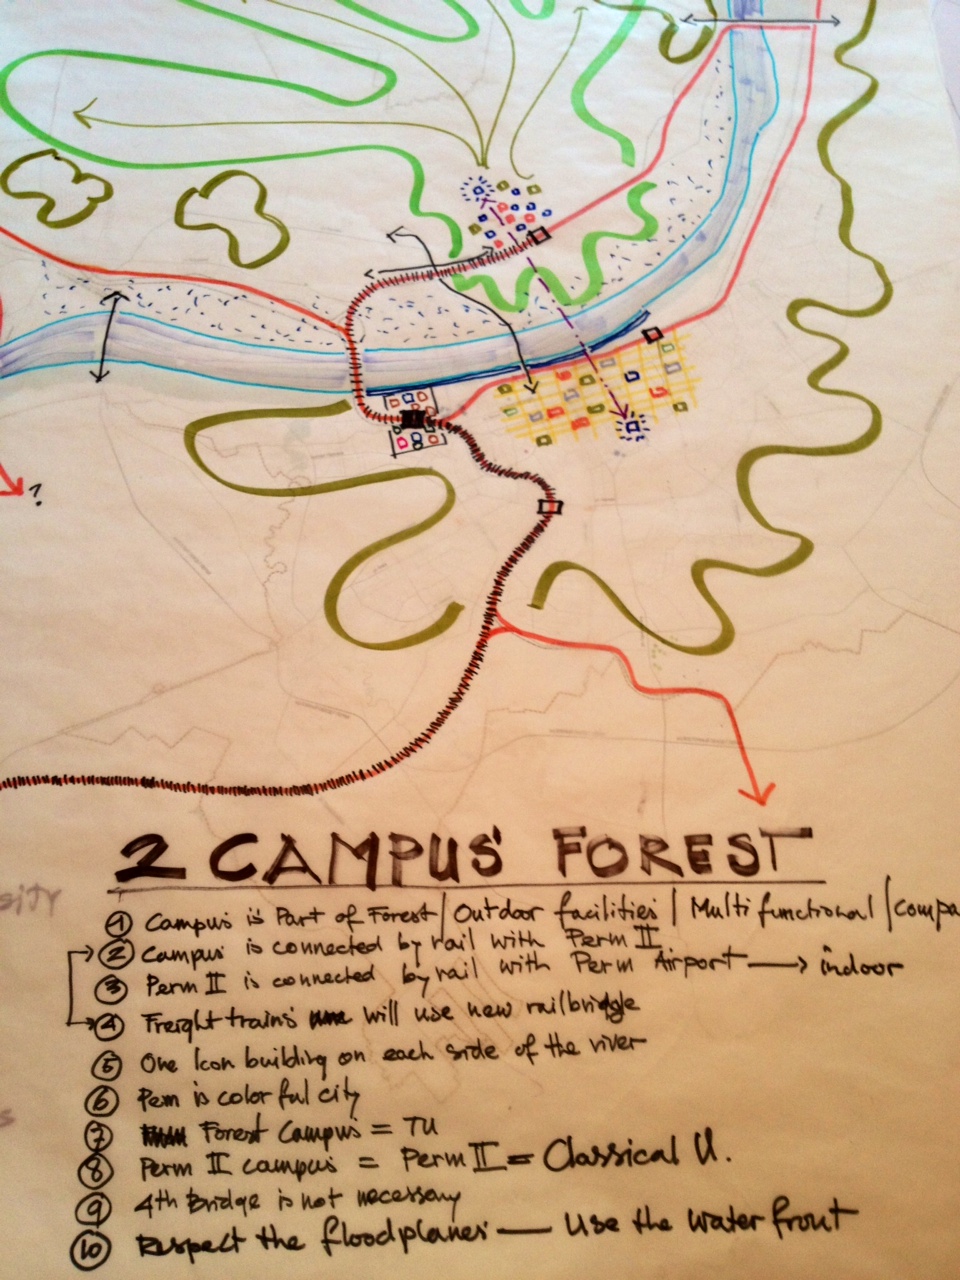 ?
2 CAMPUS' FOREST
sity
1 Campus is Part of Forest / Outdoor facilities | Multifunctional | compa
2 Campus is connected by rail with Perm II
3 Perm II is connected by rail with Perm Airport → indoor
4 Freight trains will use new railbridge
5 One Icon building on each side of the river
6 Perm is colorful city
7 Forest Campus = TU
8 Perm II campus = Perm II = Classical U.
9 4th Bridge is not necessary
10 Respect the floodplanes — Use the waterfront